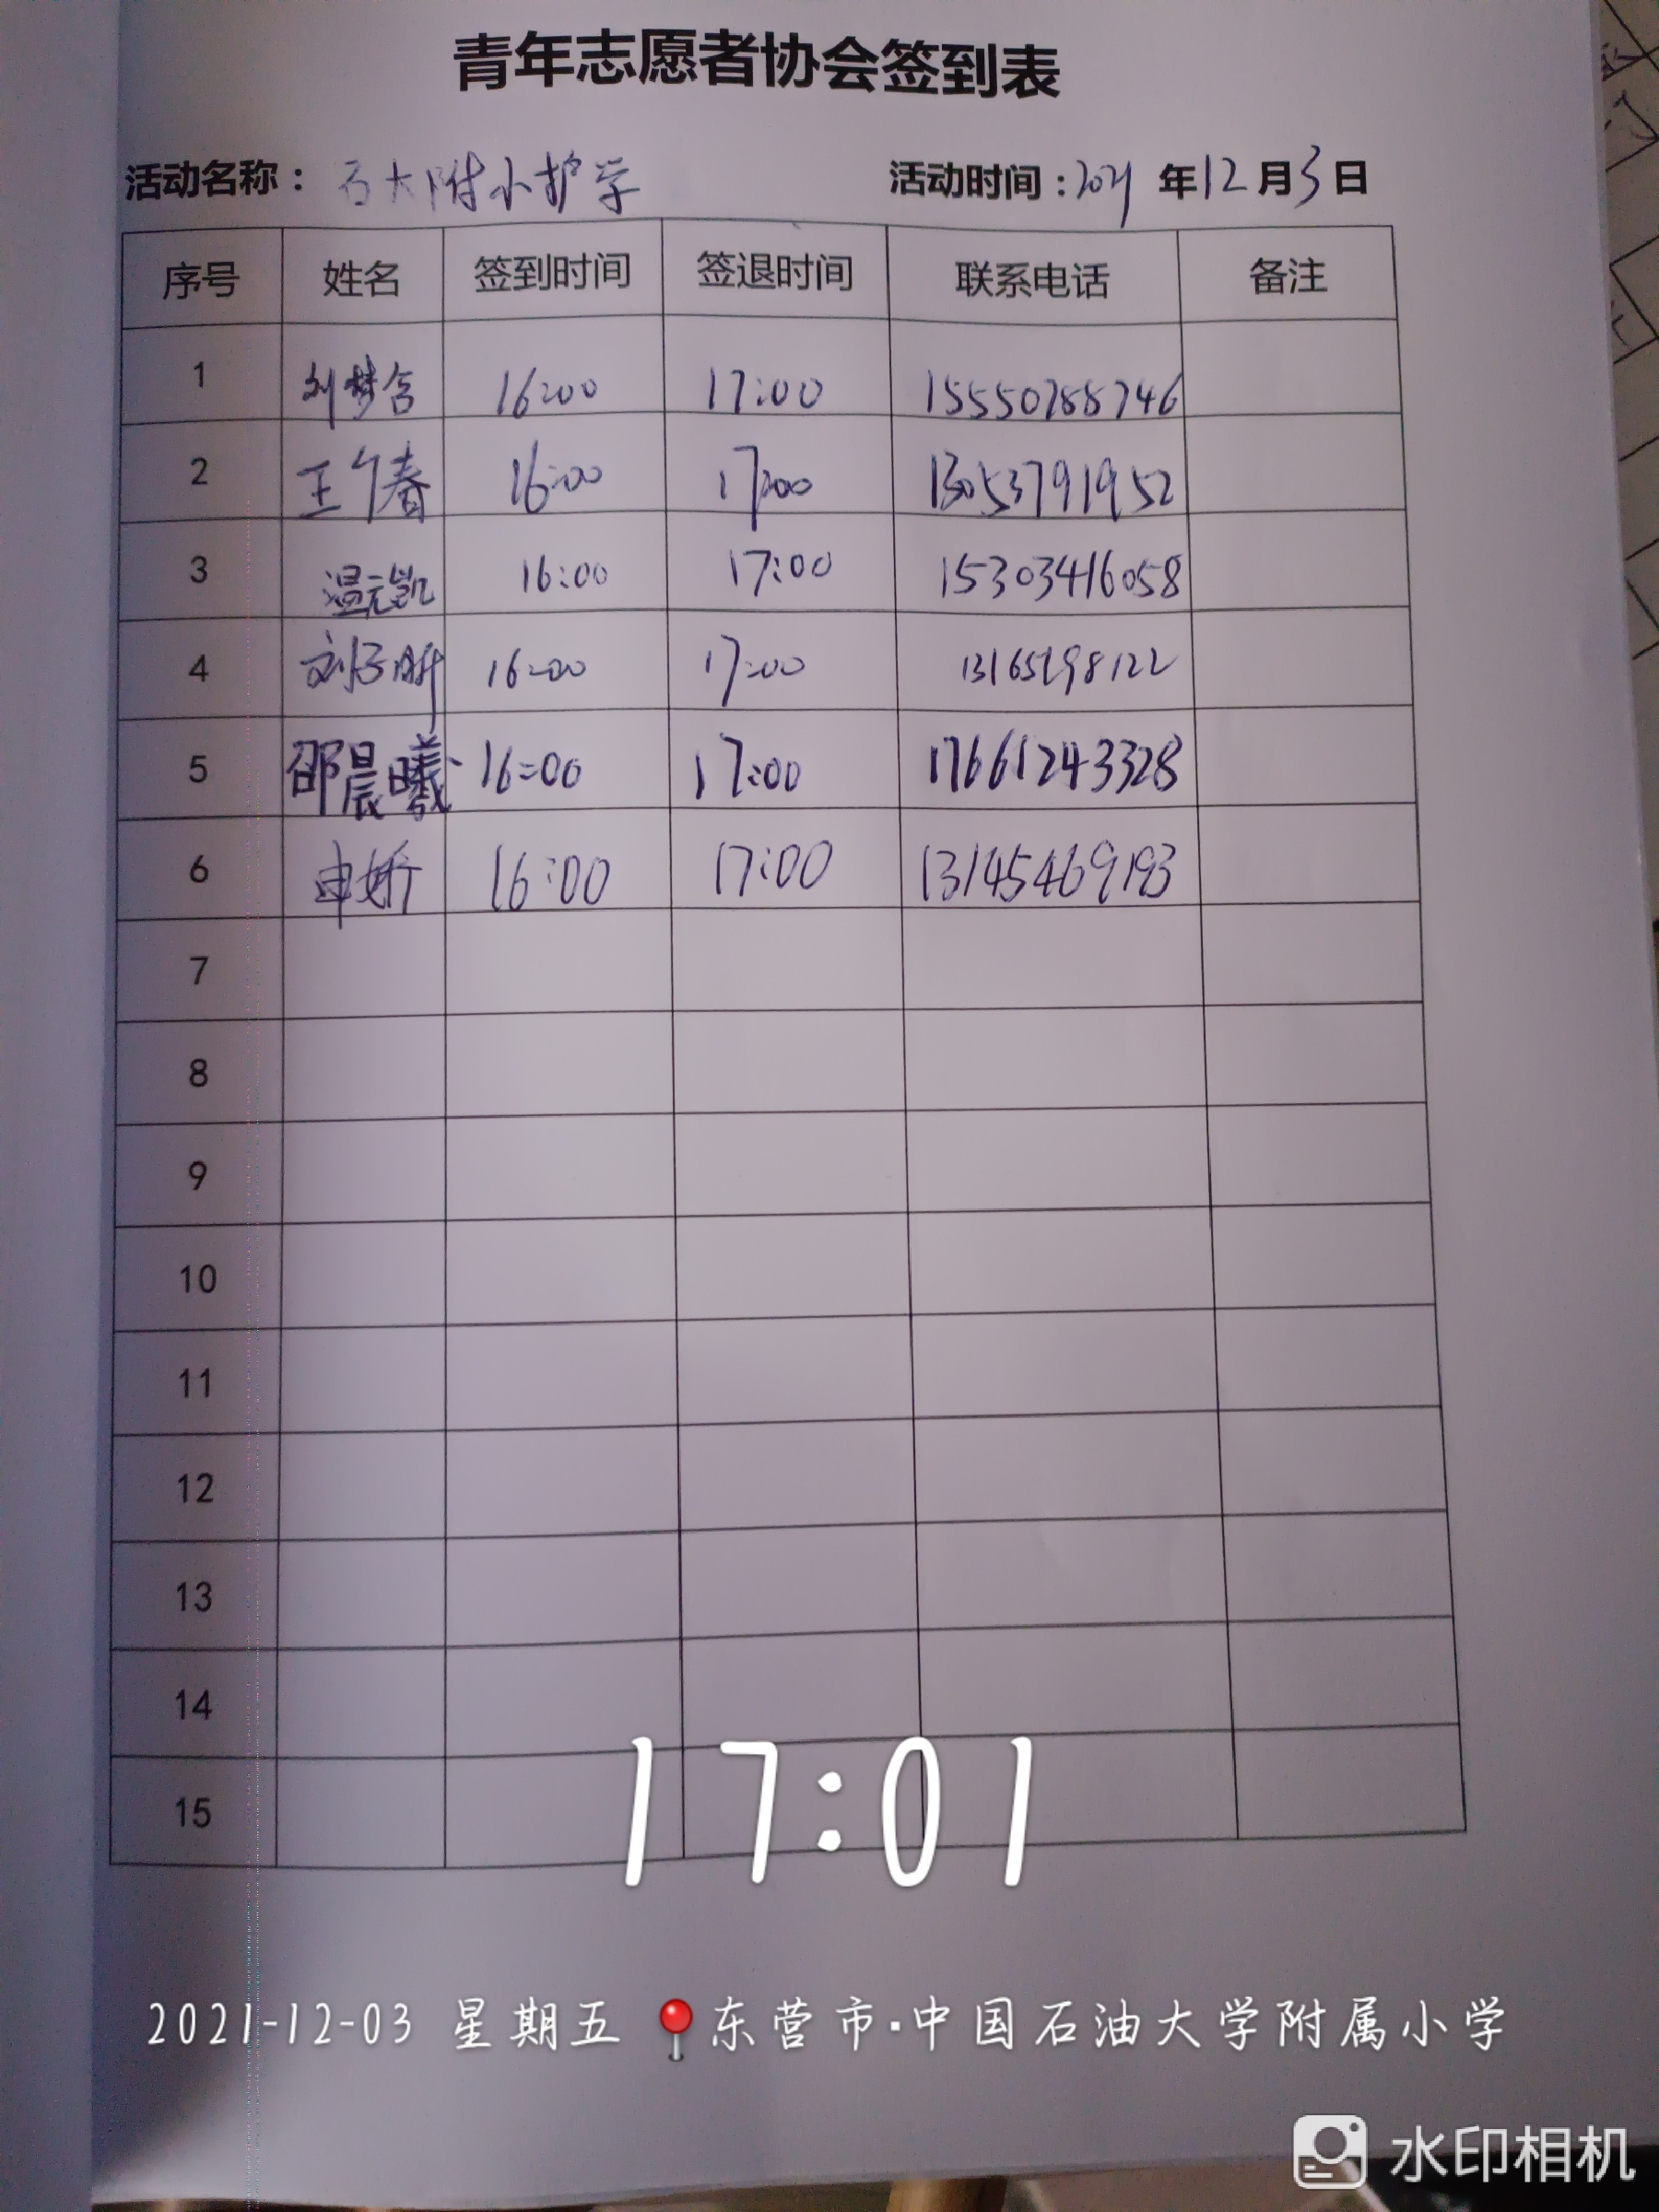 青年志愿者协会签到表
活动名称：石大附小护学 活动时间：2021年12月3日
序号 姓名 签到时间 签退时间 联系电话 备注
1 刘梦含 16:00 17:00 15550788746
2 王 春 16:00 17:00 13053791952
3 温元凯 16:00 17:00 15303416058
4 刘子 16:00 17:00
5 邵晨曦 16:00 17:00 17661243328
6 申娇 16:00 17:00 13145469193
7
8
9
10
11
12
13
14
15
17:01
2021-12-03 星期五 📍东营市·中国石油大学附属小学
水印相机